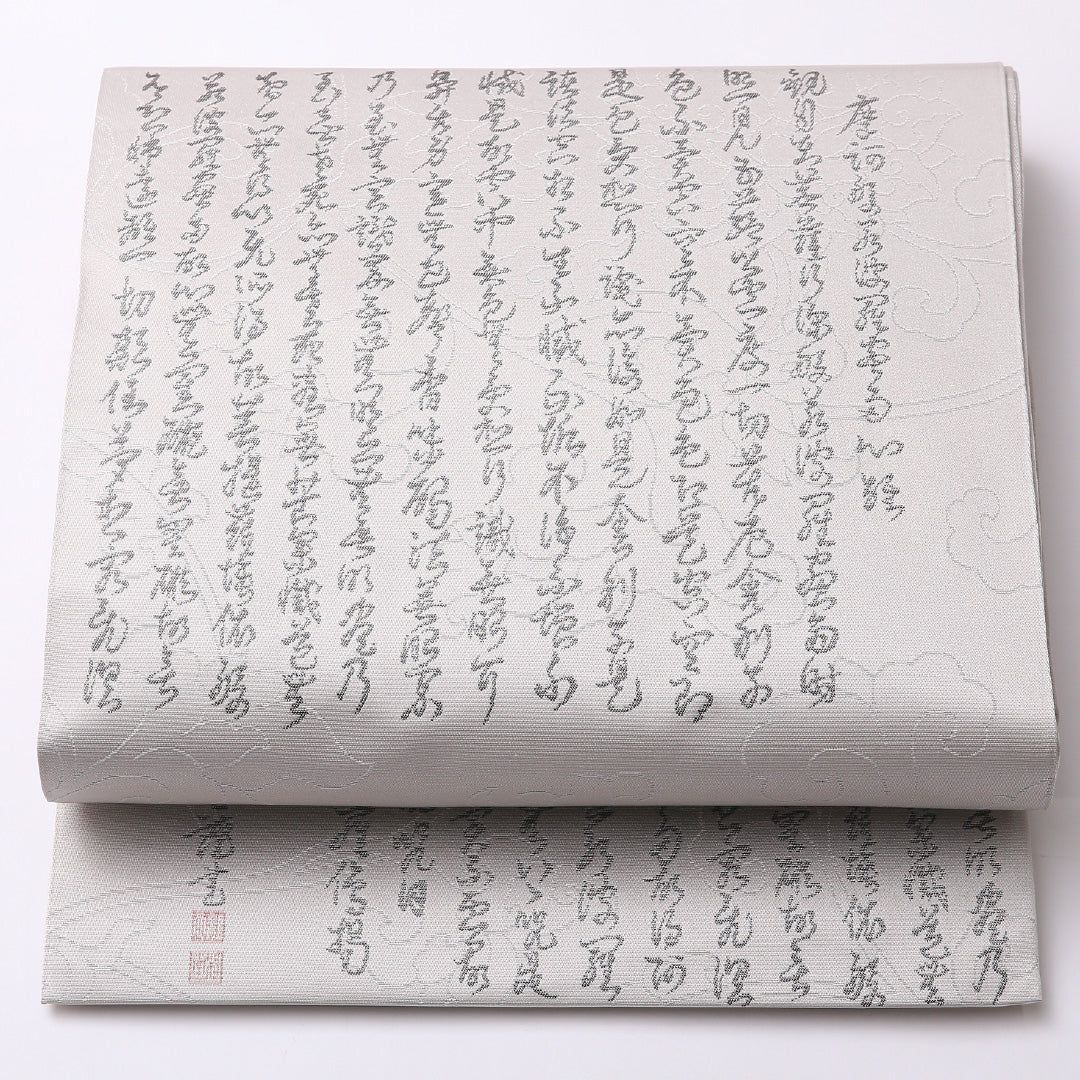 摩訶般若波羅蜜多心経
観自在菩薩行深般若波羅蜜多時
照見五蘊皆空度一切苦厄舎利子
色不異空空不異色色即是空空即
是色受想行識亦復如是舎利子是
諸法空相不生不滅不垢不浄不増不
減是故空中無色無受想行識無眼耳
鼻舌身意無色声香味触法無眼界
乃至無意識界無無明亦無無明尽乃
至無老死亦無老死尽無苦集滅道無
智亦無得以無所得故菩提薩埵依般
若波羅蜜多故心無罣礙無罣礙故無
有恐怖遠離一切顛倒夢想究竟涅
無明尽乃
集滅道無
薩埵依般
罣礙故無
究竟涅
多故得阿
若波羅
呪是
実不虚故
呪曰
羅僧掲